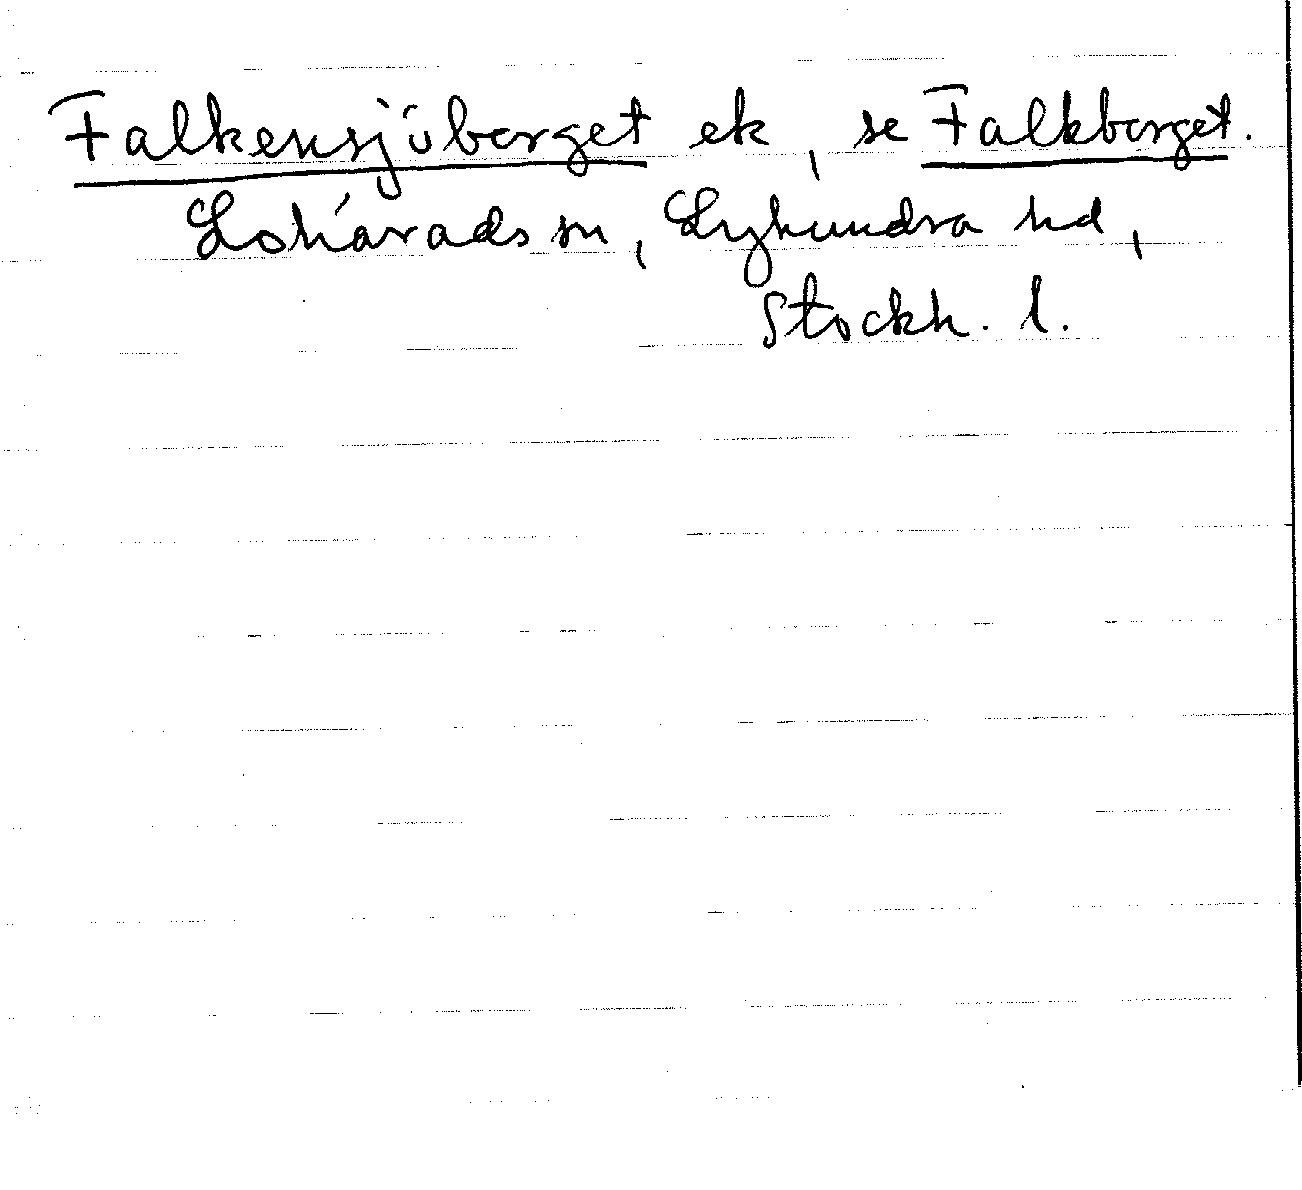 Falkensjöberget ek, se Falkberget.
Lohärads sn, Lyhundra hd,
Stockh. l.